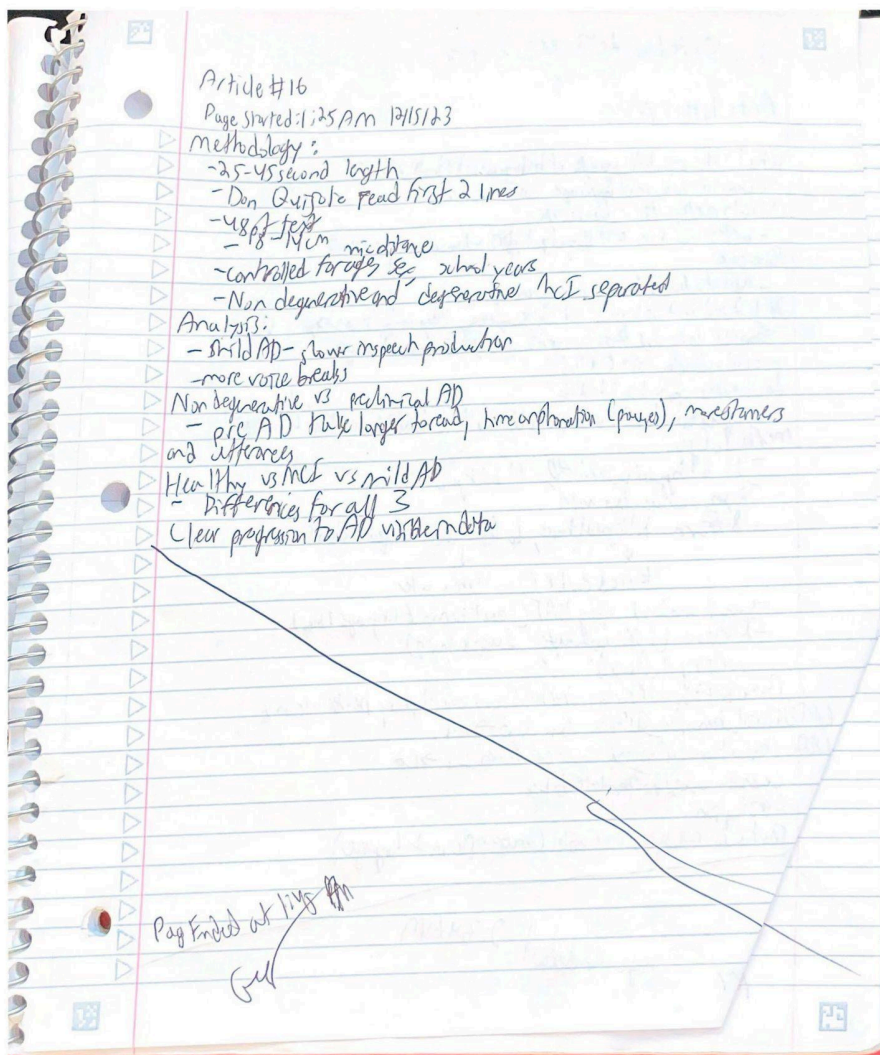 Article #16
Page started: 1:25 AM 12/15/23
Methodology:
- 25-45 second length
- Don Quijote read first 2 lines
- 48pt text
- 8-14cm mic distance
- controlled for age, sex, school years
- Non degenerative and degenerative MCI separated
Analysis:
- mild AD - slower in speech production
- more voice breaks
Non degenerative vs preclinical AD
- pre AD take longer to read, time on phonation (pauses), more stammers
and utterances
Healthy vs MCI vs mild AD
- Differences for all 3
Clear progression to AD visible in data
Page Ended at